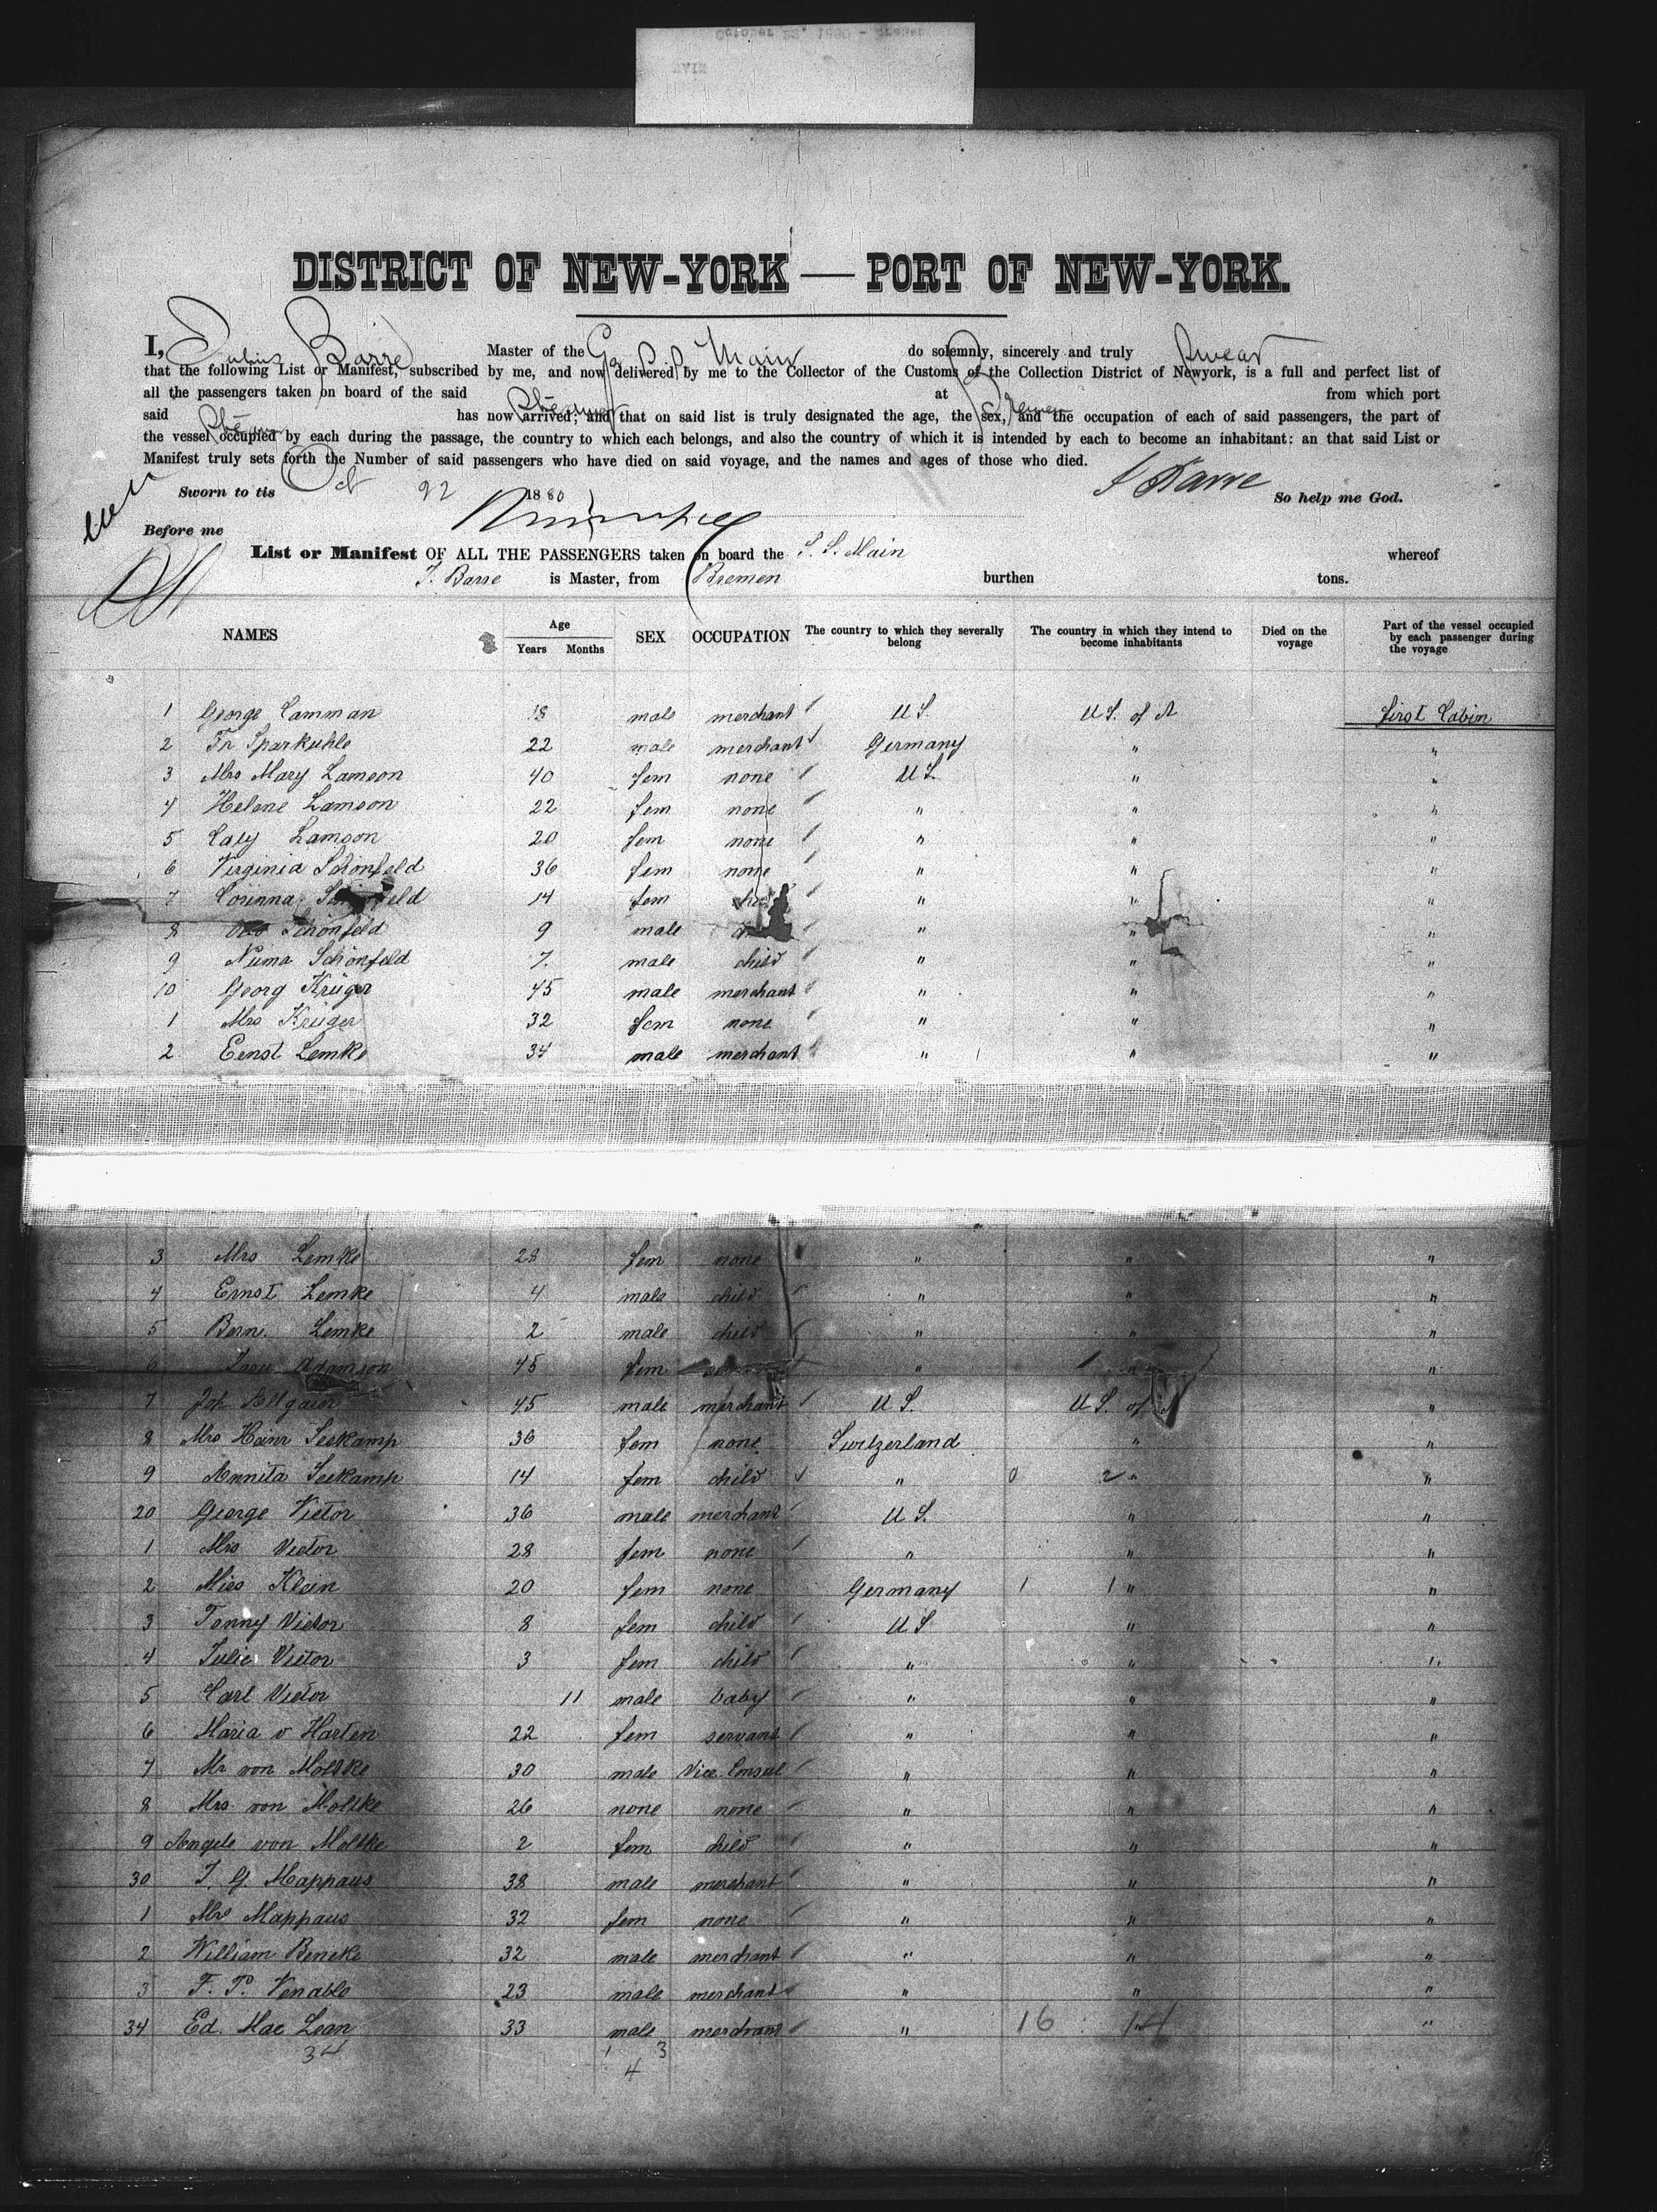 DISTRICT OF NEW-YORK — PORT OF NEW-YORK.
I, Julius Barre Master of the Gr S.S. Main do solemnly, sincerely and truly swear
that the following List or Manifest, subscribed by me, and now delivered by me to the Collector of the Customs of the Collection District of Newyork, is a full and perfect list of
all the passengers taken on board of the said Steamer at Bremen from which port
said Steamer has now arrived; and that on said list is truly designated the age, the sex, and the occupation of each of said passengers, the part of
the vessel occupied by each during the passage, the country to which each belongs, and also the country of which it is intended by each to become an inhabitant: an that said List or
Manifest truly sets forth the Number of said passengers who have died on said voyage, and the names and ages of those who died.
Sworn to tis Oct 22 1880 J Barre So help me God.
Before me
List or Manifest OF ALL THE PASSENGERS taken on board the S. S. Main whereof
J. Barre is Master, from Bremen burthen tons.
NAMES Age Years Months SEX OCCUPATION The country to which they severally belong The country in which they intend to become inhabitants Died on the voyage Part of the vessel occupied by each passenger during the voyage
1 George Camman 18 male merchant U S. U S. of A First Cabin
2 Fr Sparkuhle 22 male merchant Germany " "
3 Mrs Mary Lamson 40 fem none U S. " "
4 Helene Lamson 22 fem none " " "
5 Caly Lamson 20 fem none " " "
6 Virginia Schönfeld 36 fem none " " "
7 Corinna 14 fem " " "
8 Schönfeld 9 male " " "
9 Numa Schönfeld 7. male child " " "
10 Georg Krüger 45 male merchant " " "
1 Mrs Krüger 32 fem none " " "
2 Ernst Lemke 34 male merchant " " "
3 Mrs Lemke 28 fem none " " "
4 Ernst Lemke 4 male child " " "
5 Bern. Lemke 2 male child " " "
6 Adamson 45 fem " " "
7 Joh 45 male merchant U S. U S. of A "
8 Mrs Heinr Seekamp 36 fem none Switzerland " "
9 Annita Seekamp 14 fem child " 0 2 " "
20 George Vietor 36 male merchant U S. " "
1 Mrs Vietor 28 fem none " " "
2 Miss Klein 20 fem none Germany 1 1 " "
3 Tonny Vietor 8 fem child U S " "
4 Julie Vietor 3 fem child " " "
5 Carl Vietor 11 male baby " " "
6 Maria v Harten 22 fem servant " " "
7 Mr von Moltke 30 male Vice Consul " " "
8 Mrs von Moltke 26 none none " " "
9 Angele von Moltke 2 fem child " " "
30 J. G. Mappaus 38 male merchant " " "
1 Mrs Mappaus 32 fem none " " "
2 William Beneke 32 male merchant " " "
3 F. P. Venable 23 male merchant " " "
34 Ed. Mac Lean 33 male merchant " 16 14 "
34 1 3
4